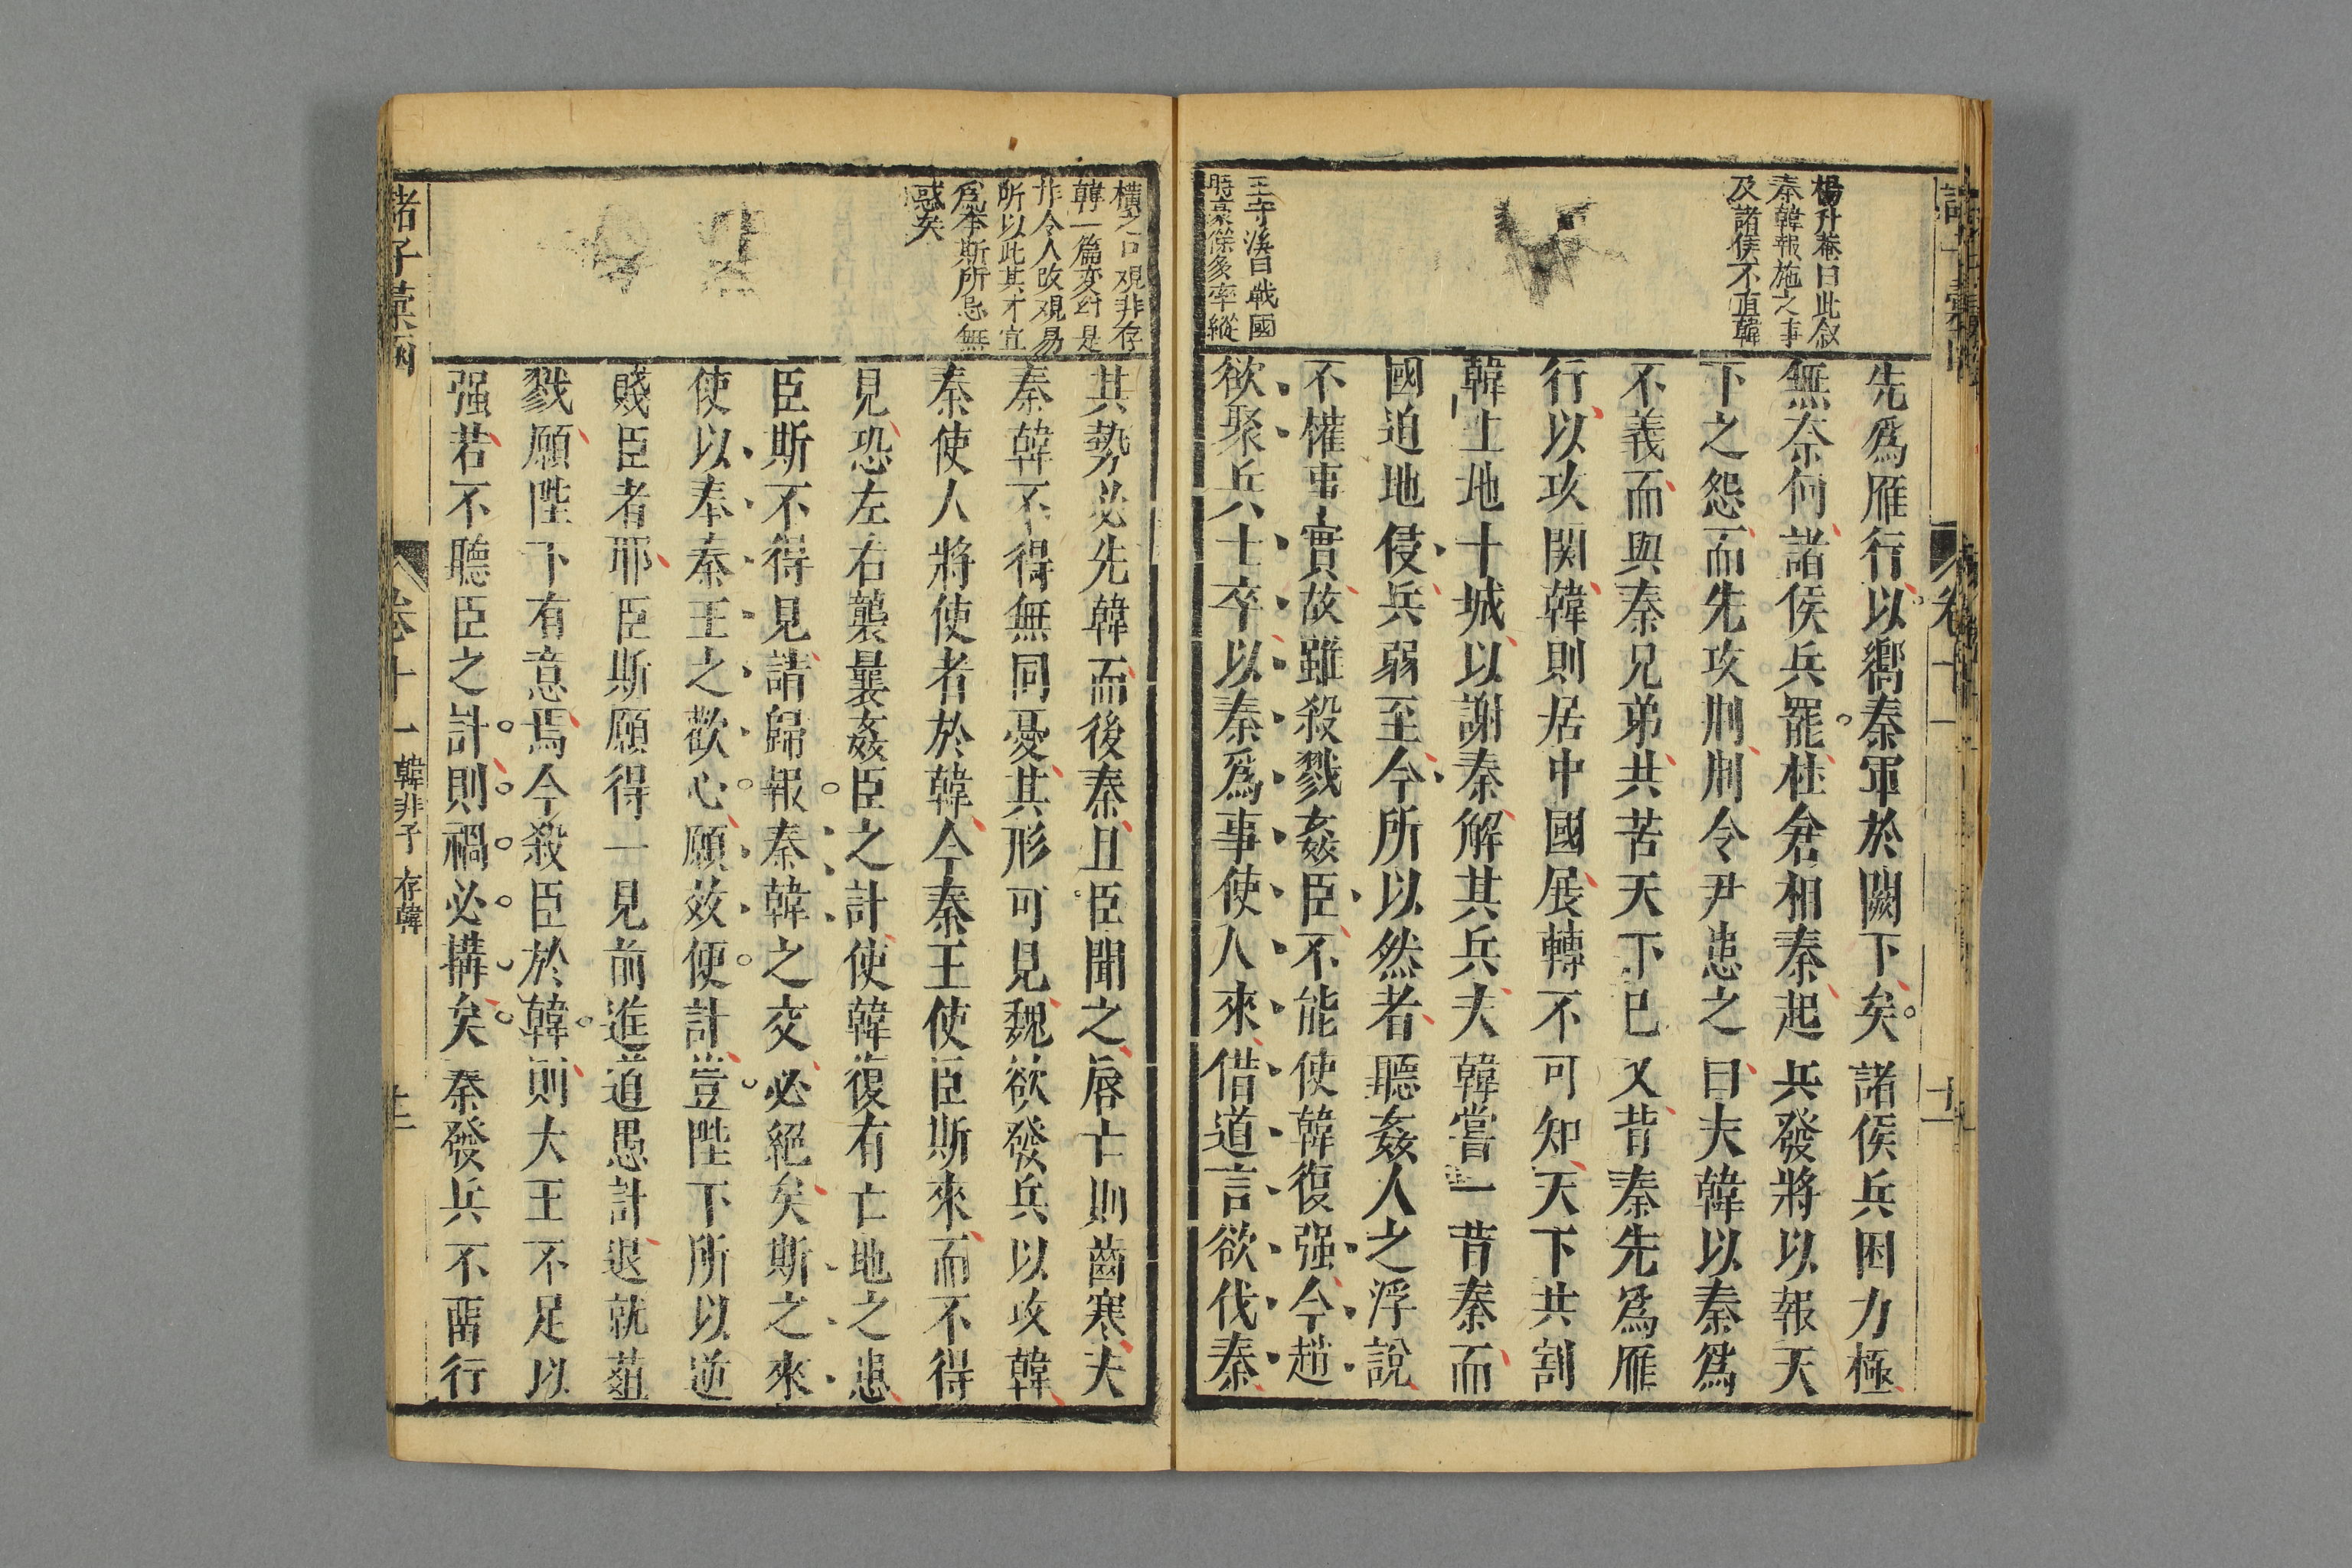 楊升菴曰此叙
秦韓報施之事
及諸侯不直韓
王守溪曰戰國
時豪傑多率縱
先爲雁行以嚮秦軍於闕下矣諸侯兵困力極
無奈何諸侯兵罷杜倉相秦起兵發將以報天
下之怨而先攻荆荆令尹患之曰夫韓以秦爲
不義而與秦兄弟共苦天下已又背秦先爲雁
行以攻関韓則居中國展轉不可知天下共割
韓上地十城以謝秦解其兵夫韓嘗一背秦而
國迫地侵兵弱至今所以然者聽姦人之浮說
不權事實故雖殺戮姦臣不能使韓復强今趙
欲聚兵士卒以秦爲事使人來借道言欲伐秦
橫之言觀非存
韓一篇変幻是
非令人改觀易
所以此其才宜
爲李斯所忌無
惑矣
其勢必先韓而後秦且臣聞之唇亡則齒寒夫
秦韓不得無同憂其形可見魏欲發兵以攻韓
秦使人將使者於韓今秦王使臣斯來而不得
見恐左右襲曩姦臣之計使韓復有亡地之患
臣斯不得見請歸報秦韓之交必絕矣斯之來
使以奉秦王之歡心願效便計豈陛下所以逆
賤臣者耶臣斯願得一見前進道愚計退就葅
戮願陛下有意焉今殺臣於韓則大王不足以
强若不聽臣之計則禍必搆矣秦發兵不畱行
諸子彙函
卷十一
韓非子 存韓
十二